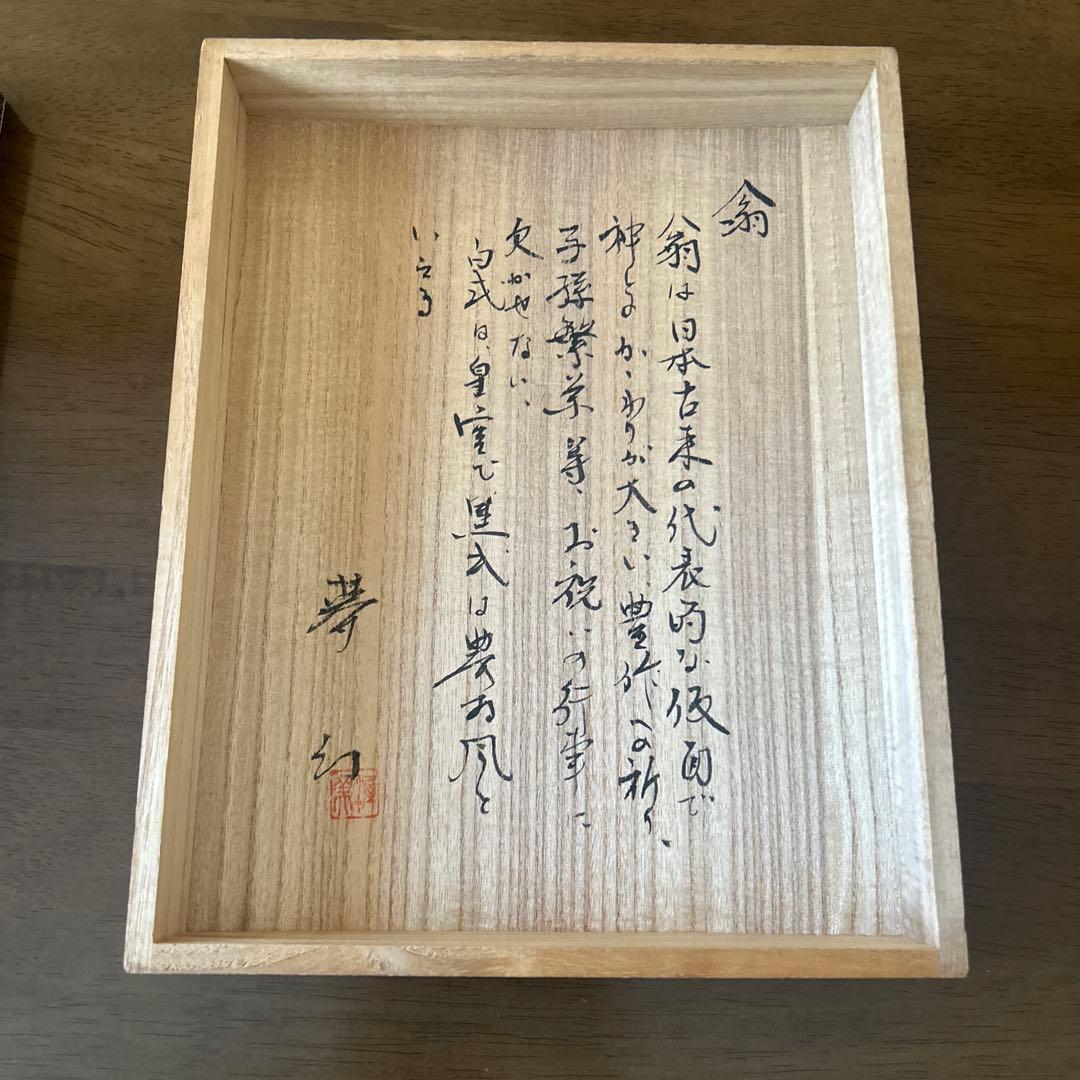 翁
翁は日本古来の代表的な仮面で
神とのかゝわりが大きい、豊作への祈り、
子孫繁栄等、お祝いの行事に
欠かせない、
白式は、皇室で黒式は農村風と
いえる
夢幻